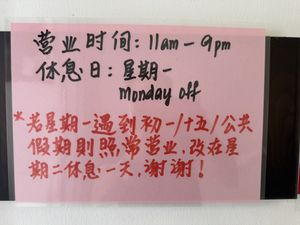 营业时间：11am – 9pm
休息日：星期一
monday off
*若星期一遇到初一/十五/公共
假期則照常营业，改在星
期二休息一天，谢谢！